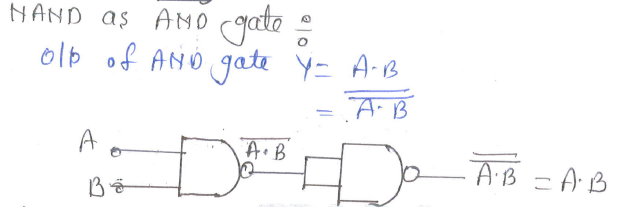 NAND as AND gate :
O/p of AND gate Y = A·B
= \overline{\overline{A·B}}
A
B
\overline{A·B}
\overline{\overline{A·B}} = A·B